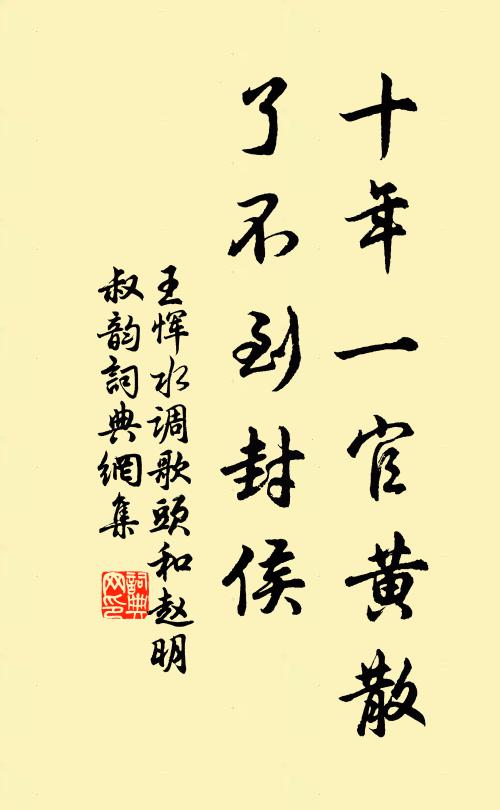 十年一官黄散
了不到封侯
王恽水调歌頭和赵明
叔韵詞典網集
詞典
网印